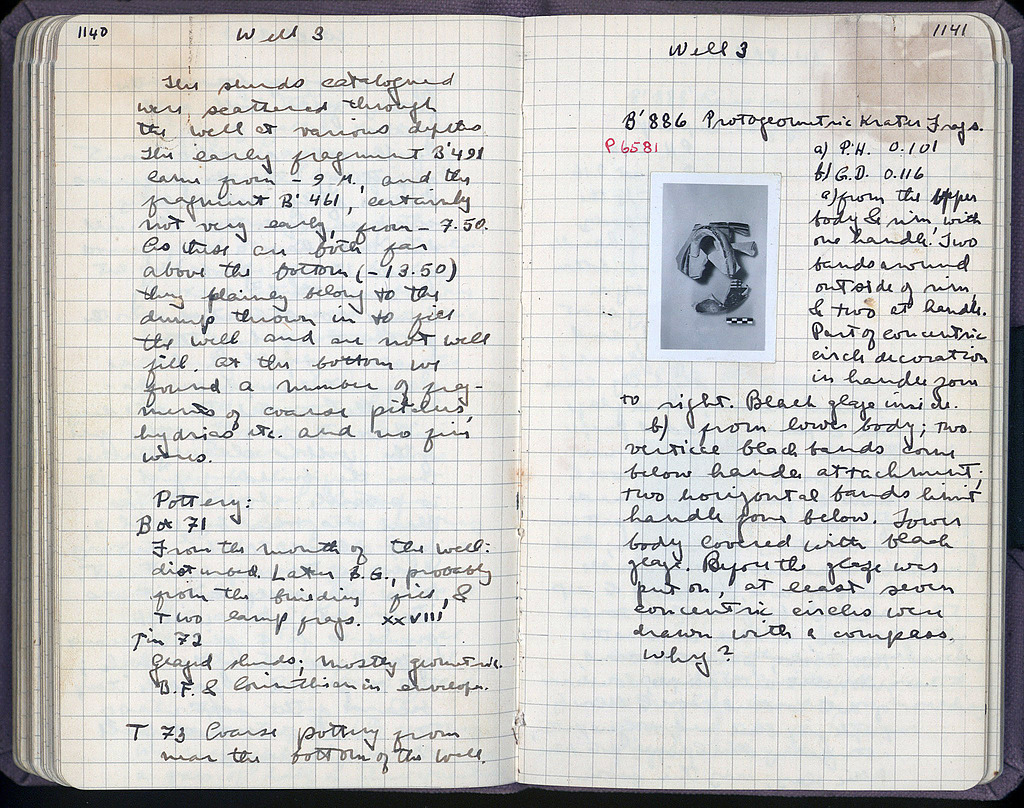 1140
Well 3
The sherds catalogued
were scattered through
the well at various depths.
The early fragment B'491
came from - 9 M, and the
fragment B' 461, certainly
not very early, from - 7.50.
As these are both far
above the bottom (-13.50)
they plainly belong to the
dump thrown in to fill
the well and are not well
fill. At the bottom we
found a number of frag-
ments of coarse pitchers,
hydrias etc. and no fine
wares.
Pottery:
Box 71
From the mouth of the well:
disturbed. Later B.G., probably
from the building fill, &
Two lamp frags. XXVIII
Tin 72
Glazed sherds; mostly geometric.
B.F. & Corinthian in envelope.
T 73 Coarse pottery from
near the bottom of the well.
1141
Well 3
B'886 Protogeometric Krater Frags.
P 6581
a) P.H. 0.101
b) G.D. 0.116
a) from the upper
body & rim, with
one handle. Two
bands around
outside of rim,
& two at handle.
Part of concentric
circle decoration
in handle zone
to right. Black glaze inside.
b) from lower body; two
vertical black bands come
below handle attachment;
two horizontal bands limit
handle zone below. Lower
body covered with black
glaze. Before the glaze was
put on, at least seven
concentric circles were
drawn with a compass.
Why?